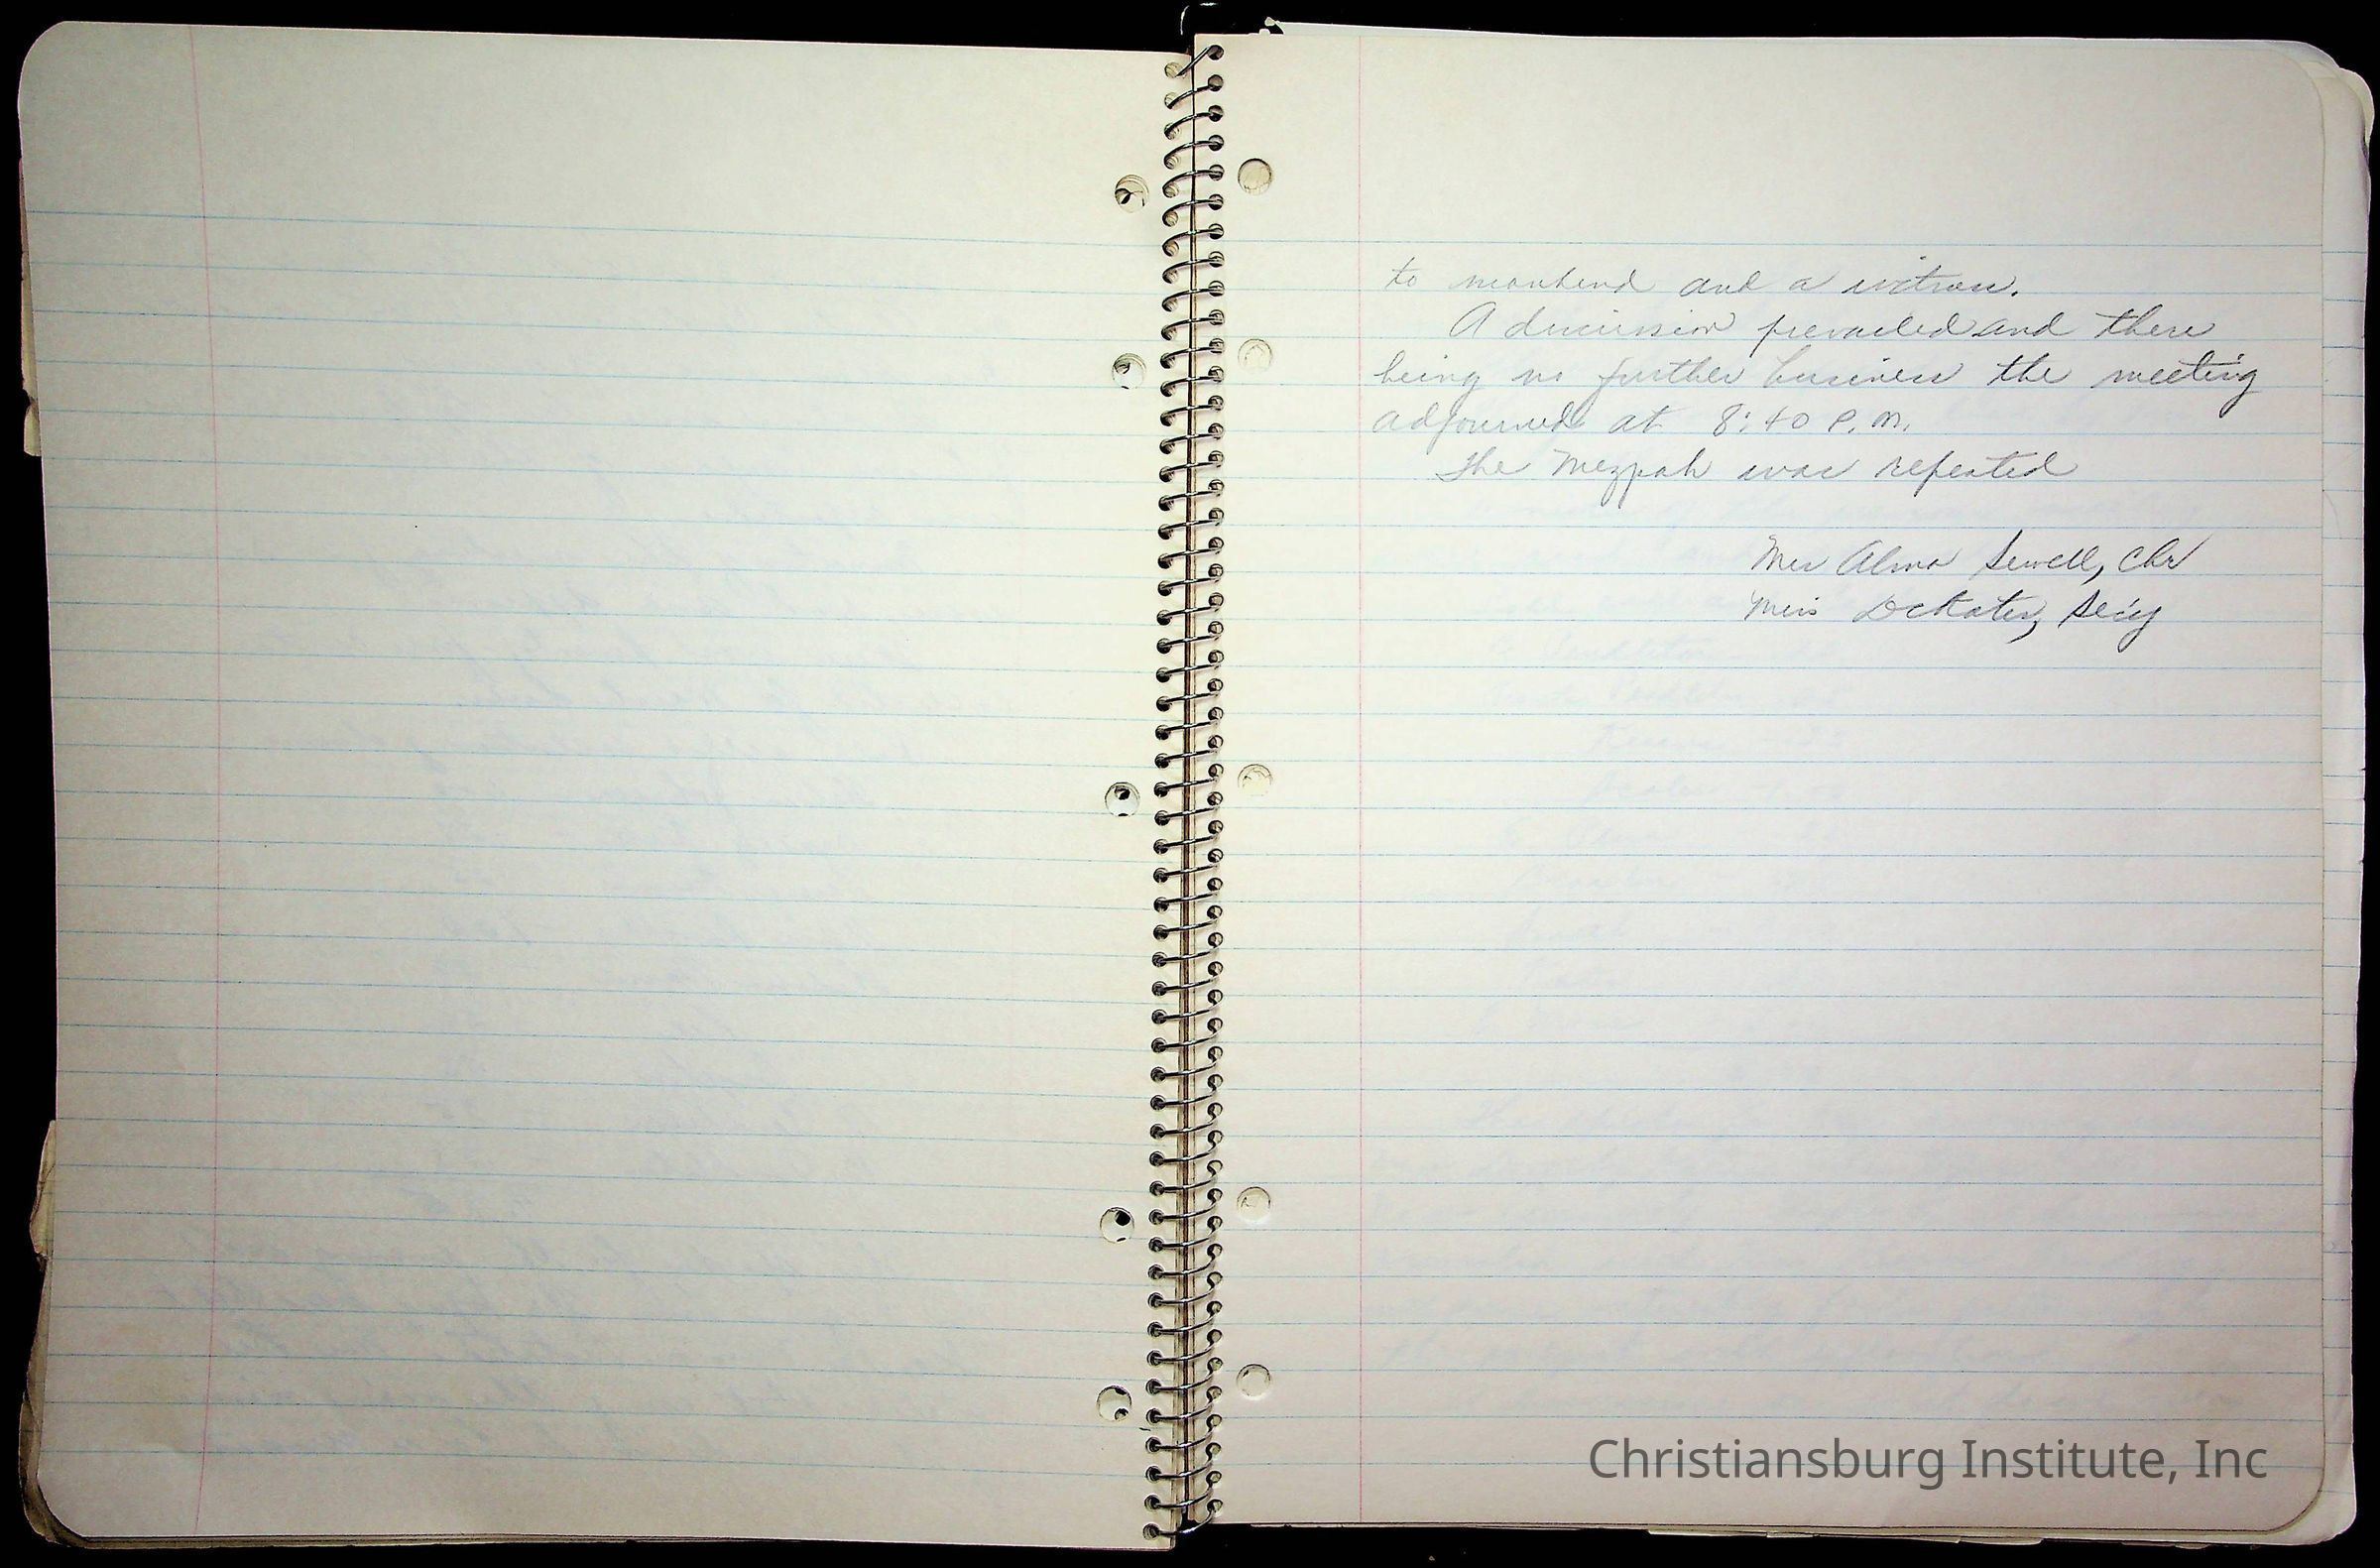 to mankind and a witness.
A discussion prevailed and there
being no further business the meeting
adjourned at 8:40 P.M.
The Mezpah was repeated
Mrs Alma Sewell, Chr
Miss DeKater, Sec'y
Christiansburg Institute, Inc